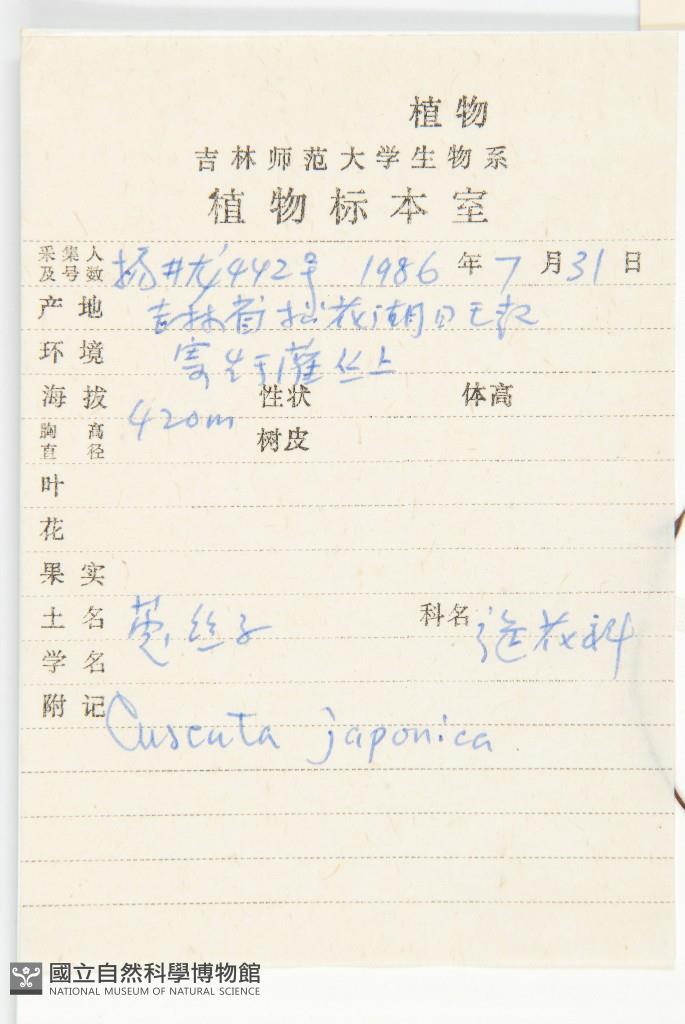 植物
吉林师范大学生物系
植物标本室
采集人及号数 杨井龙442号 1986年7月31日
产地 吉林省松花湖
环境 寄生于灌丛上
海拔 420m 性状 体高
胸高直径 树皮
叶
花
果实
土名 菟丝子 科名 旋花科
学名
附记 Cuscuta japonica
國立自然科學博物館
NATIONAL MUSEUM OF NATURAL SCIENCE